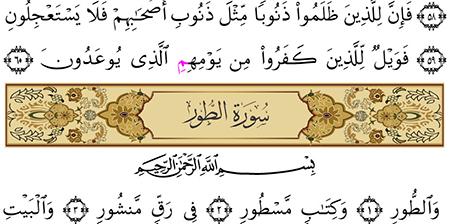 ﴿٥٨﴾ فَإِنَّ لِلَّذِينَ ظَلَمُوا۟ ذَنُوبًا مِّثْلَ ذَنُوبِ أَصْحَٰبِهِمْ فَلَا يَسْتَعْجِلُونِ
﴿٥٩﴾ فَوَيْلٌ لِّلَّذِينَ كَفَرُوا۟ مِن يَوْمِهِمِ ٱلَّذِى يُوعَدُونَ ﴿٦٠﴾
سُورَةُ الطُّورِ
بِسْمِ ٱللَّهِ ٱلرَّحْمَٰنِ ٱلرَّحِيمِ
وَٱلطُّورِ ﴿١﴾ وَكِتَٰبٍ مَّسْطُورٍ ﴿٢﴾ فِى رَقٍّ مَّنشُورٍ ﴿٣﴾ وَٱلْبَيْتِ